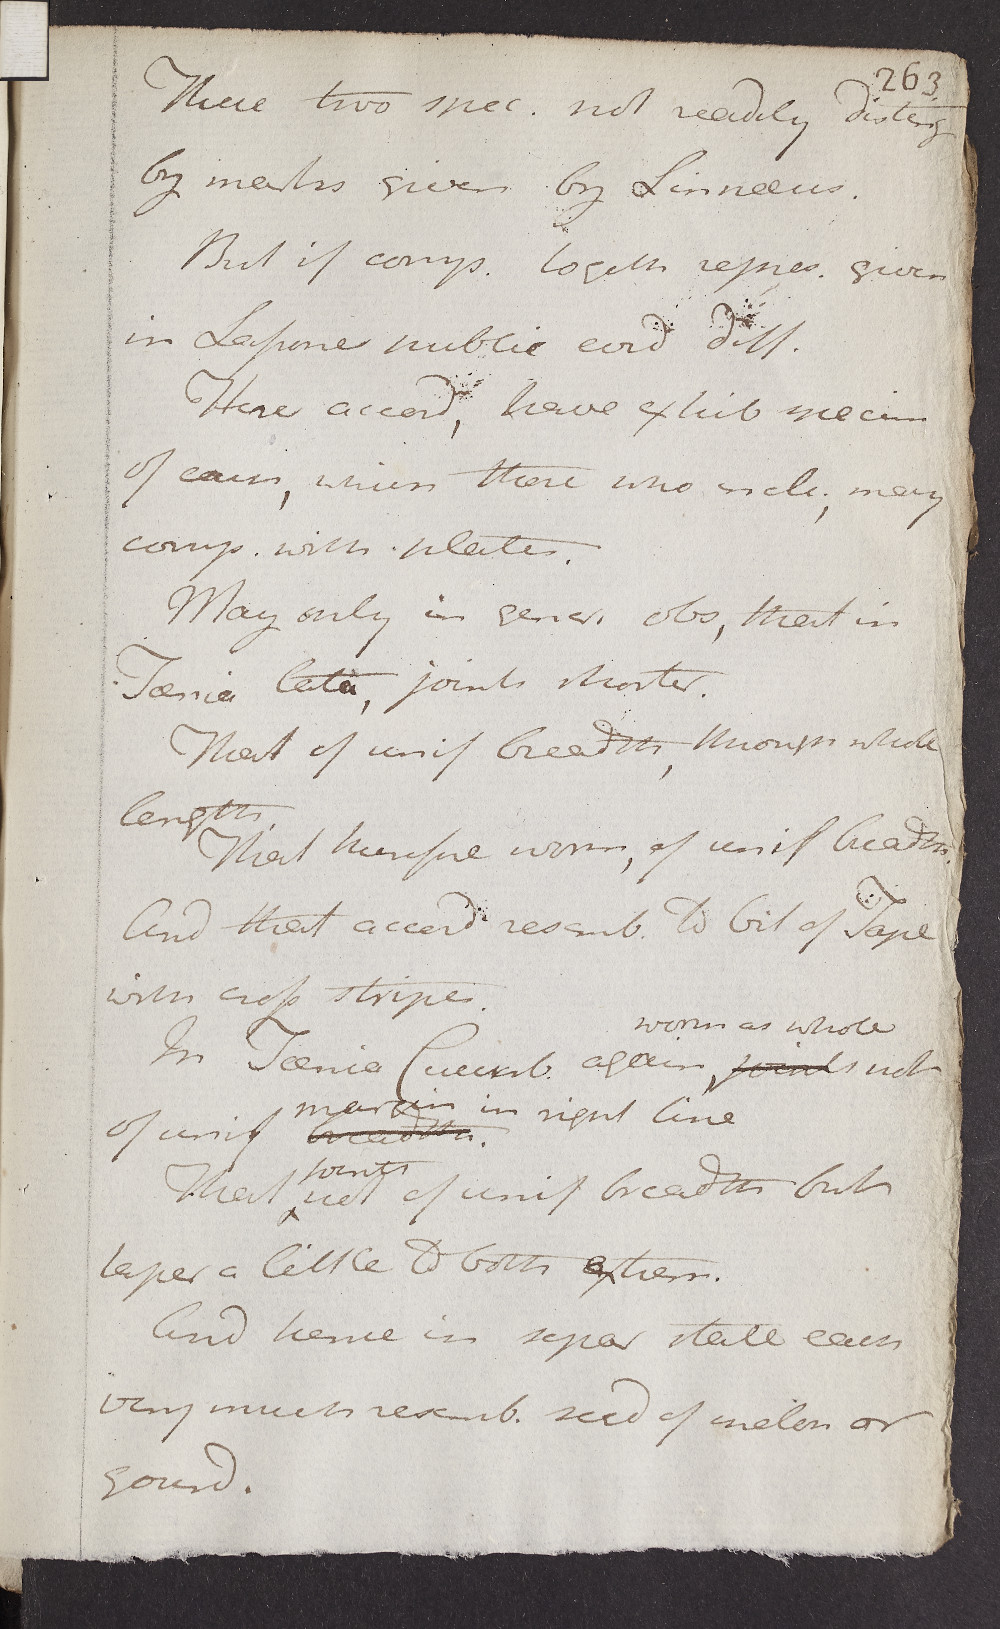 263
These two spec. not readily disting
by marks given by Linnæus.
But if comp. togeth repres. given
in public evid diff.
Have accord, have exhib specim
of each, which those who incl., may
comp. with plates.
May only in gener. obs, that in
Tænia lata, joints shorter.
That of unif breadth, through whole
length.
That therefore worm, of unif breadth.
And that accord resemb. to bit of Tape
with cross stripes.
worm as whole
In Tænia Cucurb. again, joints not
margin in right line
of unif breadth.
joints
That not of unif breadth but
taper a little to both extrem.
And hence in separ state each
very much resemb. seed of melon or
gourd.